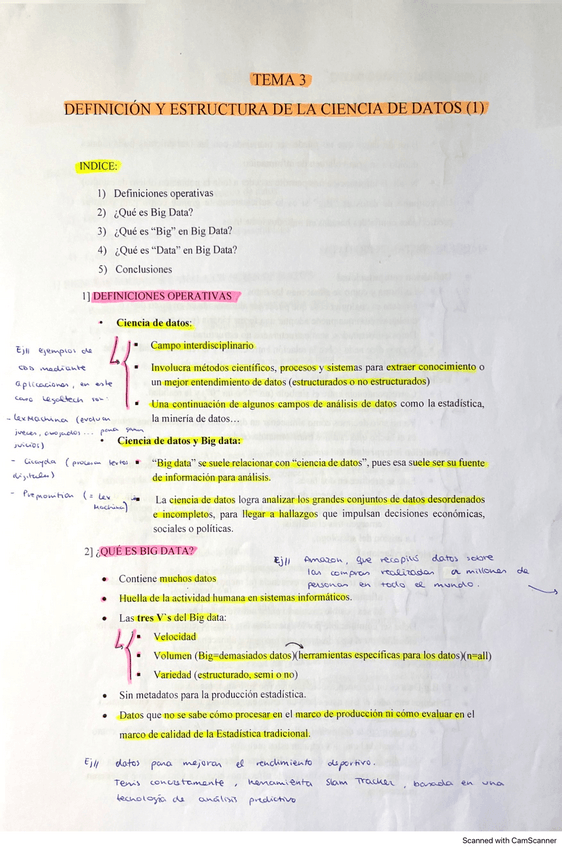 TEMA 3
DEFINICIÓN Y ESTRUCTURA DE LA CIENCIA DE DATOS (1)
INDICE:
1) Definiciones operativas
2) ¿Qué es Big Data?
3) ¿Qué es “Big” en Big Data?
4) ¿Qué es “Data” en Big Data?
5) Conclusiones
1] DEFINICIONES OPERATIVAS
• Ciencia de datos:
▪ Campo interdisciplinario
▪ Involucra métodos científicos, procesos y sistemas para extraer conocimiento o
un mejor entendimiento de datos (estructurados o no estructurados)
▪ Una continuación de algunos campos de análisis de datos como la estadística,
la minería de datos…
Ej// ejemplos de
mediante
aplicaciones, en este
caso legaltech son:
- LexMachina (evalúan
jueces, abogados... para
juicios)
- (procesa textos
digitales)
- (= Lex
Machina)
• Ciencia de datos y Big data:
▪ “Big data” se suele relacionar con “ciencia de datos”, pues esa suele ser su fuente
de información para análisis.
▪ La ciencia de datos logra analizar los grandes conjuntos de datos desordenados
e incompletos, para llegar a hallazgos que impulsan decisiones económicas,
sociales o políticas.
2] ¿QUÉ ES BIG DATA?
Ej// Amazon, que recopila datos sobre
las compras realizadas a millones de
personas en todo el mundo.
• Contiene muchos datos
• Huella de la actividad humana en sistemas informáticos.
• Las tres V's del Big data:
▪ Velocidad
▪ Volumen (Big=demasiados datos)(herramientas específicas para los datos)(n=all)
▪ Variedad (estructurado, semi o no)
• Sin metadatos para la producción estadística.
• Datos que no se sabe cómo procesar en el marco de producción ni cómo evaluar en el
marco de calidad de la Estadística tradicional.
Ej// datos para mejorar el rendimiento deportivo.
Tenis concretamente, herramienta Slam Tracker, basada en una
tecnología de análisis predictivo
Scanned with CamScanner